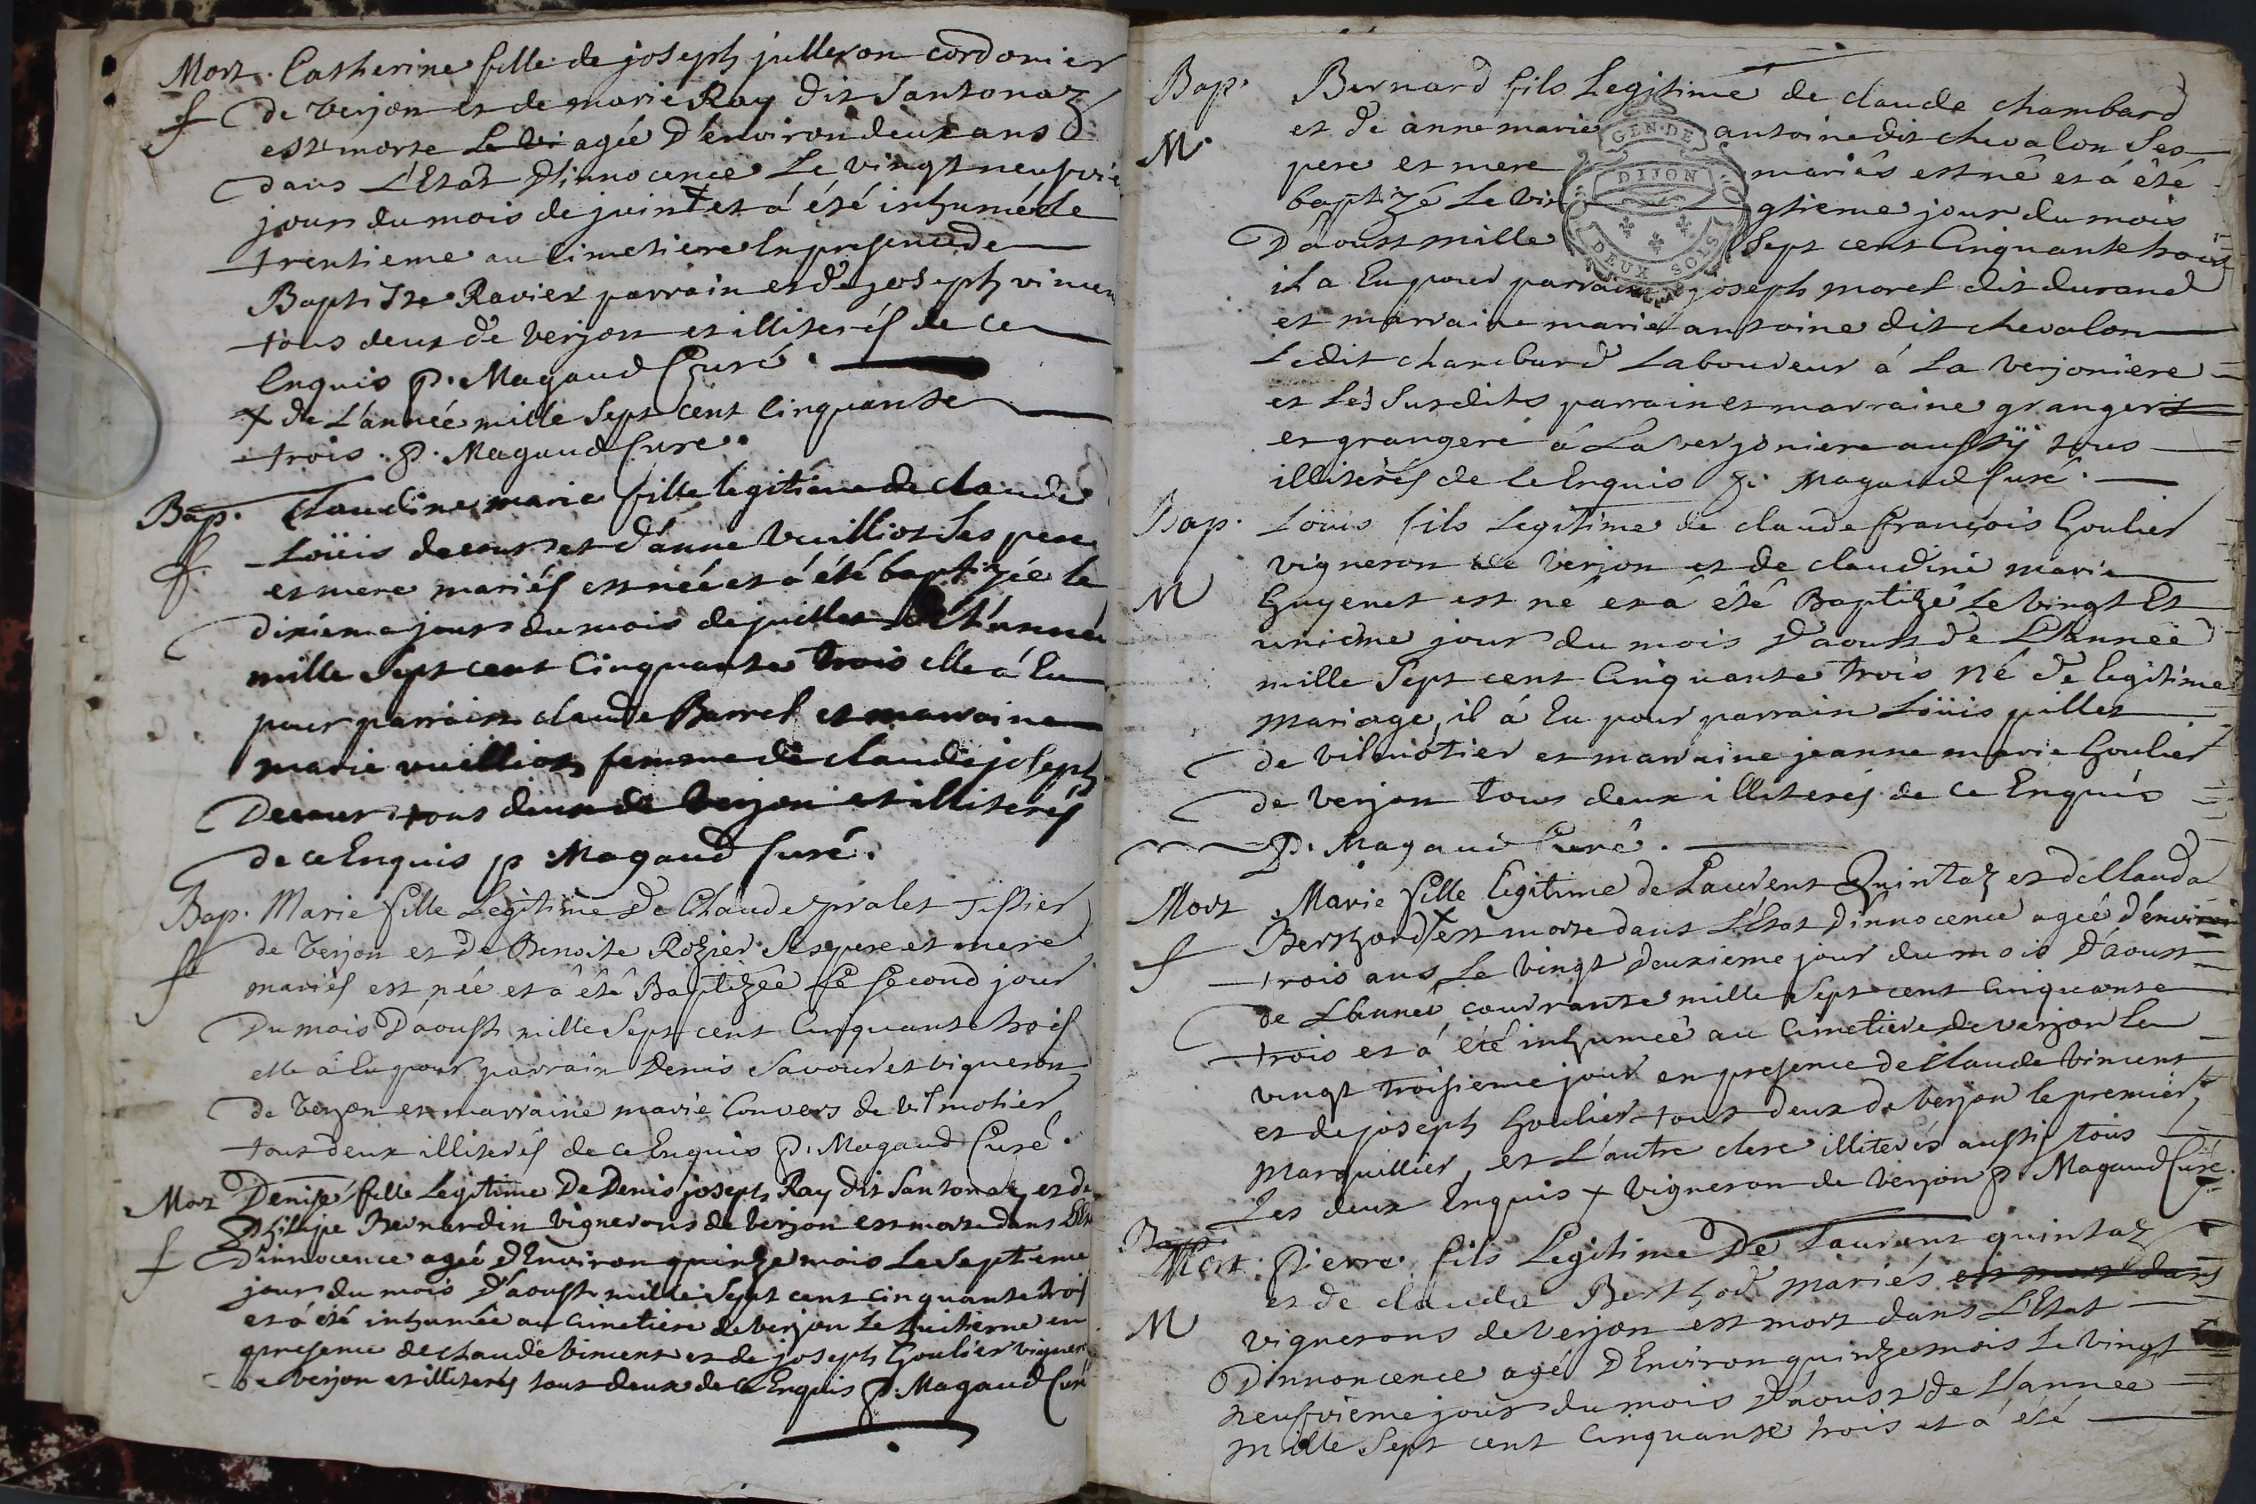 Mort. Catherine fille de joseph julleron cordonier
f de verjon et de marie Ray dit Santonaz
est morte le vi agée d'environ deux ans
dans L'Etat d'innocence Le vingt neufvie
jour du mois de juin + et á été inhumée le
trentieme au cimetiere En presence de
Baptiste Ravier parrain et de joseph vincen
tous deux de verjon et illiterés de ce
Enquis p. Magaud Curé.
+ de L'année mille Sept cent Cinquante
trois. p. Magaud Curé.
Bap. Claudine marie fille legitime de claude
f. Loüis decour et d'anne Vuilliot Ses pere
et mere mariés est née et á été baptizée le
dixieme jour du mois de juillet de L'année
mille Sept cent Cinquante trois elle á Eu
pour parrain claude Barrel et marraine
marie vuilliot femme de claude joseph
Decour tous deux de verjon et illiterés
de ce Enquis p. Magaud Curé.
Bap. Marie fille Legitime De Claude pralet Tissier
f de verjon et De Benoite Rozier Ses pere et mere
mariés est née et á été Baptizée Le Second jour
Du mois D'aoust mille Sept cent Cinquante trois
elle á Eu pour parrain Denis Savouret vigneron
de verjon et marraine marie Convers de vilmotier
tous deux illiterés de ce Enquis p. Magaud Curé.
Mort Denise fille Legitime De Denis joseph Ray dit Santonaz et de
f philipe Bernardin vignerons de verjon est morte dans L'Etat
D'innocence agée D'Environ quinze mois Le Septieme
jour du mois D'aoust mille Sept cent cinquante trois
et á été inhumée au Cimetiere de verjon Le huitieme en
presence de claude vincent et de joseph Goulier vigner
de verjon et illiterés tous deux de ce Enquis p. Magaud Curé
Bap. Bernard fils Legitime de claude chambard
M. et de anne marie antoine dit chevalon Ses
pere et mere mariés est né et á été
baptizé Le vin gtieme jour du mois
D'aoust mille Sept cent Cinquante trois
GEN. DE
DIJON
DEUX SOLS
il a Eu pour parrain joseph morel dit durand
et marraine marie antoine dit chevalon
Ledit chambard Laboureur á La verjoniere
et Les Susdits parrain et marraine granger
et grangere á La verjoniere aussÿ tous
illiterés de ce Enquis p. Magaud Curé.
Bap. Loüis fils Legitime de claude françois Goulier
vigneron de verjon et de claudine marie
M Guyenet est né et á été Baptizé Le vingt Et
unieme jour du mois D'aoust de L'Année
mille Sept cent Cinquante trois né de legitime
mariage, il á Eu pour parrain Loüis pillet
de vilmotier et marraine jeanne marie Goulier
de verjon tous deux illiterés de ce Enquis
p. Magaud Curé.
Mort Marie fille legitime de Laurent Quintaz et de Clauda
f Berthod + est morte dans L'Etat D'innocence agée d'environ
trois ans Le vingt deuxieme jour du mois D'aoust
de L'Année courrante mille Sept cent Cinquante
trois et á été inhumée au Cimetiere de verjon Le
vingt troisieme jour en presence de Claude vincent
et de joseph Goulier tous deux de verjon le premier
marguillier, et L'autre clerc illiterés aussy tous
Les deux Enquis + vigneron de verjon p. Magaud Curé
Bap
Mort. Pierre fils Legitime De Laurent quintaz
et de clauda Berthod mariés est mort dans
M vignerons de verjon est mort dans L'Etat
D'innoncence agé D'Environ quinze mois Le vingt
neufvieme jour du mois D'aoust de L'annee
mille Sept cent Cinquante trois et á été